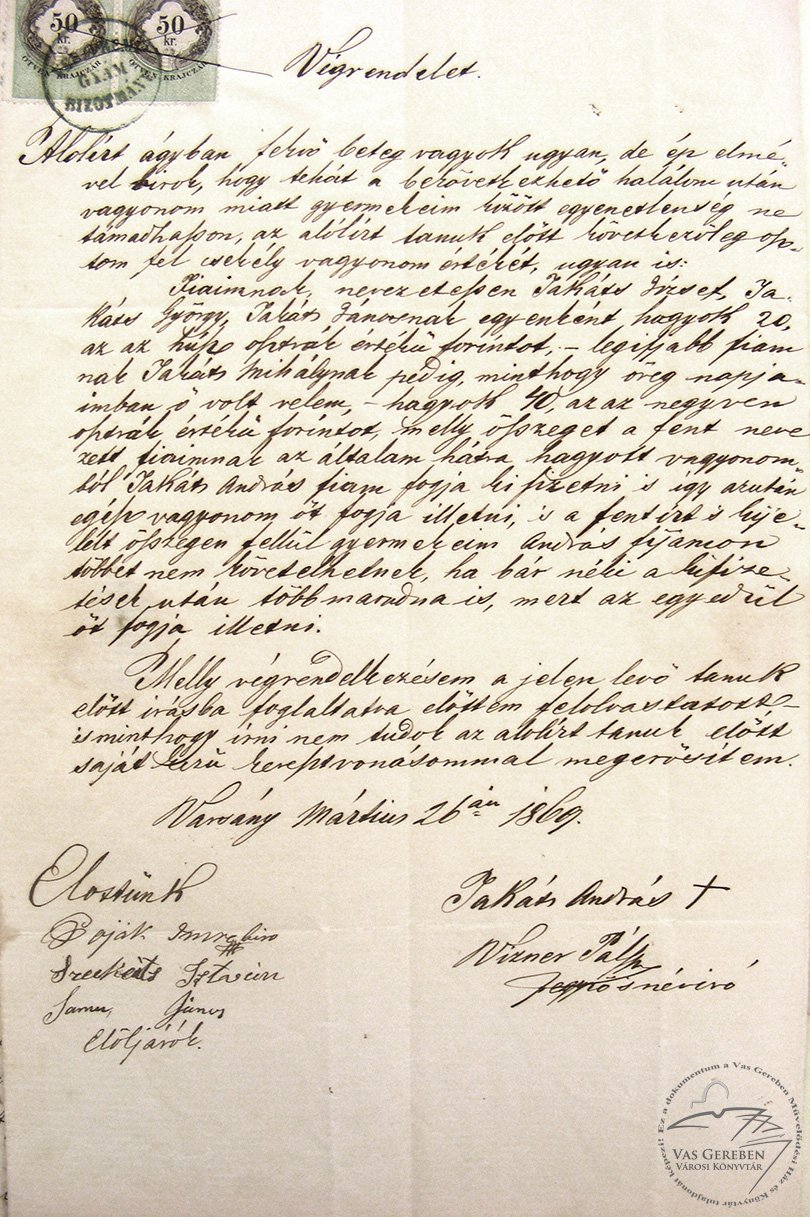 50 kr. 50 kr.
ÖTVEN KRAJCZÁR ÖTVEN KRAJCZÁR
GYÁM
BIZOTMÁNY
Végrendelet.
Alólírt ágyban fekvő beteg vagyok ugyan, de ép elmé-
vel birok, hogy tehát a berövetkezhető halálom után
vagyonom miatt gyermekeim között egyenetlenség ne
támadhasson, az alólírt tanuk előtt következőleg osz-
tom fel csekély vagyonom értékét, ugyan is:
Fiaimnak, nevezetessen Takáts József, Ta-
káts György, Takáts Jánosnak egyenként hagyok 20,
az az húsz osztrák értékű forintot, – legifjabb fiam
nak Takáts Mihálynak pedig, minthogy öreg napja-
imban ő volt velem, – hagyok 40, azaz negyven
osztrák értékű forintot, melly összeget a fent neve
zett fiaimnak az általam hátra hagyott vagyonom-
ból Takáts András fiam fogja kifizetni is így azután
egész vagyonom őt fogja illetni, is a fentírt is kije-
lélt összegen fellül gyermekeim András fijamon
többet nem követelhetnek, ha bár néki a kifize-
tések után több maradna is, mert az egyedül
őt fogja illetni.
Melly végrendelkezésem a jelen levő tanuk
előtt írásba foglaltatva előttem felolvastatott –
is minthogy írni nem tudok az alólírt tanuk előtt
saját kezű keresztvonásommal megerősítem.
Varsány Március 26 án 1869.
Elostünk
Takáts András +
Poják Imre biro
Wizner Pál
Szekeits Istvan
névíró
Samu János
Elöljárók.
Ez a dokumentum a Vas Gereben Művelődési Ház és Könyvtár tulajdonát képezi!
VAS GEREBEN
VÁROSI KÖNYVTÁR